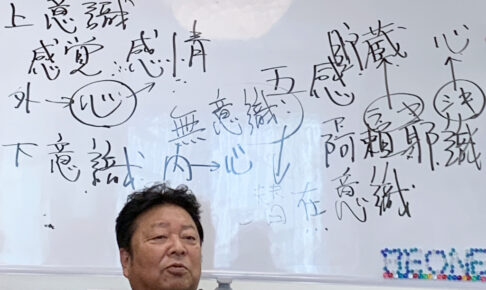 上意識
感覚 感情
外→心
下意識 内→心
無意識 五感
潜在意識
貯蔵 心
阿頼耶識
BEONE